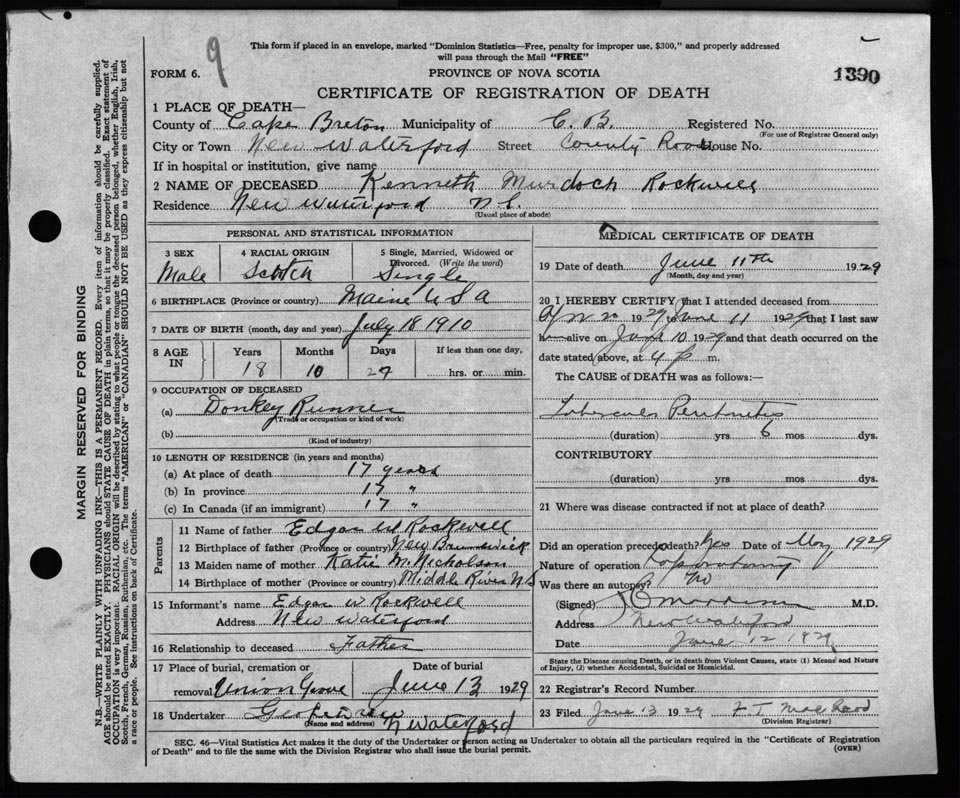 This form if placed in an envelope, marked "Dominion Statistics—Free, penalty for improper use, $300," and properly addressed
will pass through the Mail "FREE"
9
FORM 6.
PROVINCE OF NOVA SCOTIA
1390
CERTIFICATE OF REGISTRATION OF DEATH
1 PLACE OF DEATH—
County of Cape Breton Municipality of C. B. Registered No.
(For use of Registrar General only)
City or Town New Waterford Street County Road House No.
If in hospital or institution, give name
2 NAME OF DECEASED Kenneth Murdoch Rockwell
Residence New Waterford N.S.
(Usual place of abode)
PERSONAL AND STATISTICAL INFORMATION
3 SEX
Male
4 RACIAL ORIGIN
Scotch
5 Single, Married, Widowed or
Divorced. (Write the word)
Single
6 BIRTHPLACE (Province or country) Maine U S A
7 DATE OF BIRTH (month, day and year) July 18 1910
8 AGE IN
Years Months Days If less than one day,
18 10 27 hrs. or min.
9 OCCUPATION OF DECEASED
(a) Donkey Runner
(Trade or occupation or kind of work)
(b)
(Kind of industry)
10 LENGTH OF RESIDENCE (in years and months)
(a) At place of death 17 years
(b) In province 17 "
(c) In Canada (if an immigrant) 17 "
Parents
11 Name of father Edgar W Rockwell
12 Birthplace of father (Province or country) New Brunswick
13 Maiden name of mother Katie McNicholson
14 Birthplace of mother (Province or country) Middle River N S
15 Informant's name Edgar W Rockwell
Address New Waterford
16 Relationship to deceased Father
17 Place of burial, cremation or
Date of burial
removal Union Grove June 13 1929
18 Undertaker
(Name and address)
N Waterford
MEDICAL CERTIFICATE OF DEATH
19 Date of death June 11th 1929
(Month, day and year)
20 I HEREBY CERTIFY that I attended deceased from
1929 to June 11 1929 that I last saw
h alive on June 10 1929 and that death occurred on the
date stated above, at 4 p m.
The CAUSE of DEATH was as follows:—
Tubercular Peritonitis
(duration) yrs 6 mos dys.
CONTRIBUTORY
(duration) yrs mos dys.
21 Where was disease contracted if not at place of death?
Did an operation precede death? Yes Date of May 1929
Nature of operation Laparotomy
Was there an autopsy? No
(Signed) M.D.
Address New Waterford
Date June 12 1929
State the Disease causing Death, or in death from Violent Causes, state (1) Means and Nature
of Injury, (2) whether Accidental, Suicidal or Homicidal.
22 Registrar's Record Number
23 Filed June 13 1929
(Division Registrar)
SEC. 46—Vital Statistics Act makes it the duty of the Undertaker or person acting as Undertaker to obtain all the particulars required in the "Certificate of Registration
of Death" and to file the same with the Division Registrar who shall issue the burial permit.
(OVER)
MARGIN RESERVED FOR BINDING
N.B.—WRITE PLAINLY WITH UNFADING INK—THIS IS A PERMANENT RECORD. Every item of information should be carefully supplied.
AGE should be stated EXACTLY. PHYSICIANS should STATE CAUSE OF DEATH in plain terms, so that it may be properly classified. Exact statement of
OCCUPATION is very important. RACIAL ORIGIN will be described by stating to what people or tongue the deceased person belonged, whether English, Irish,
Scotch, French, German, Russian, Ruthenian, etc. The terms "AMERICAN" or "CANADIAN" SHOULD NOT BE USED as they express citizenship but not
a race or people. See instructions on back of Certificate.